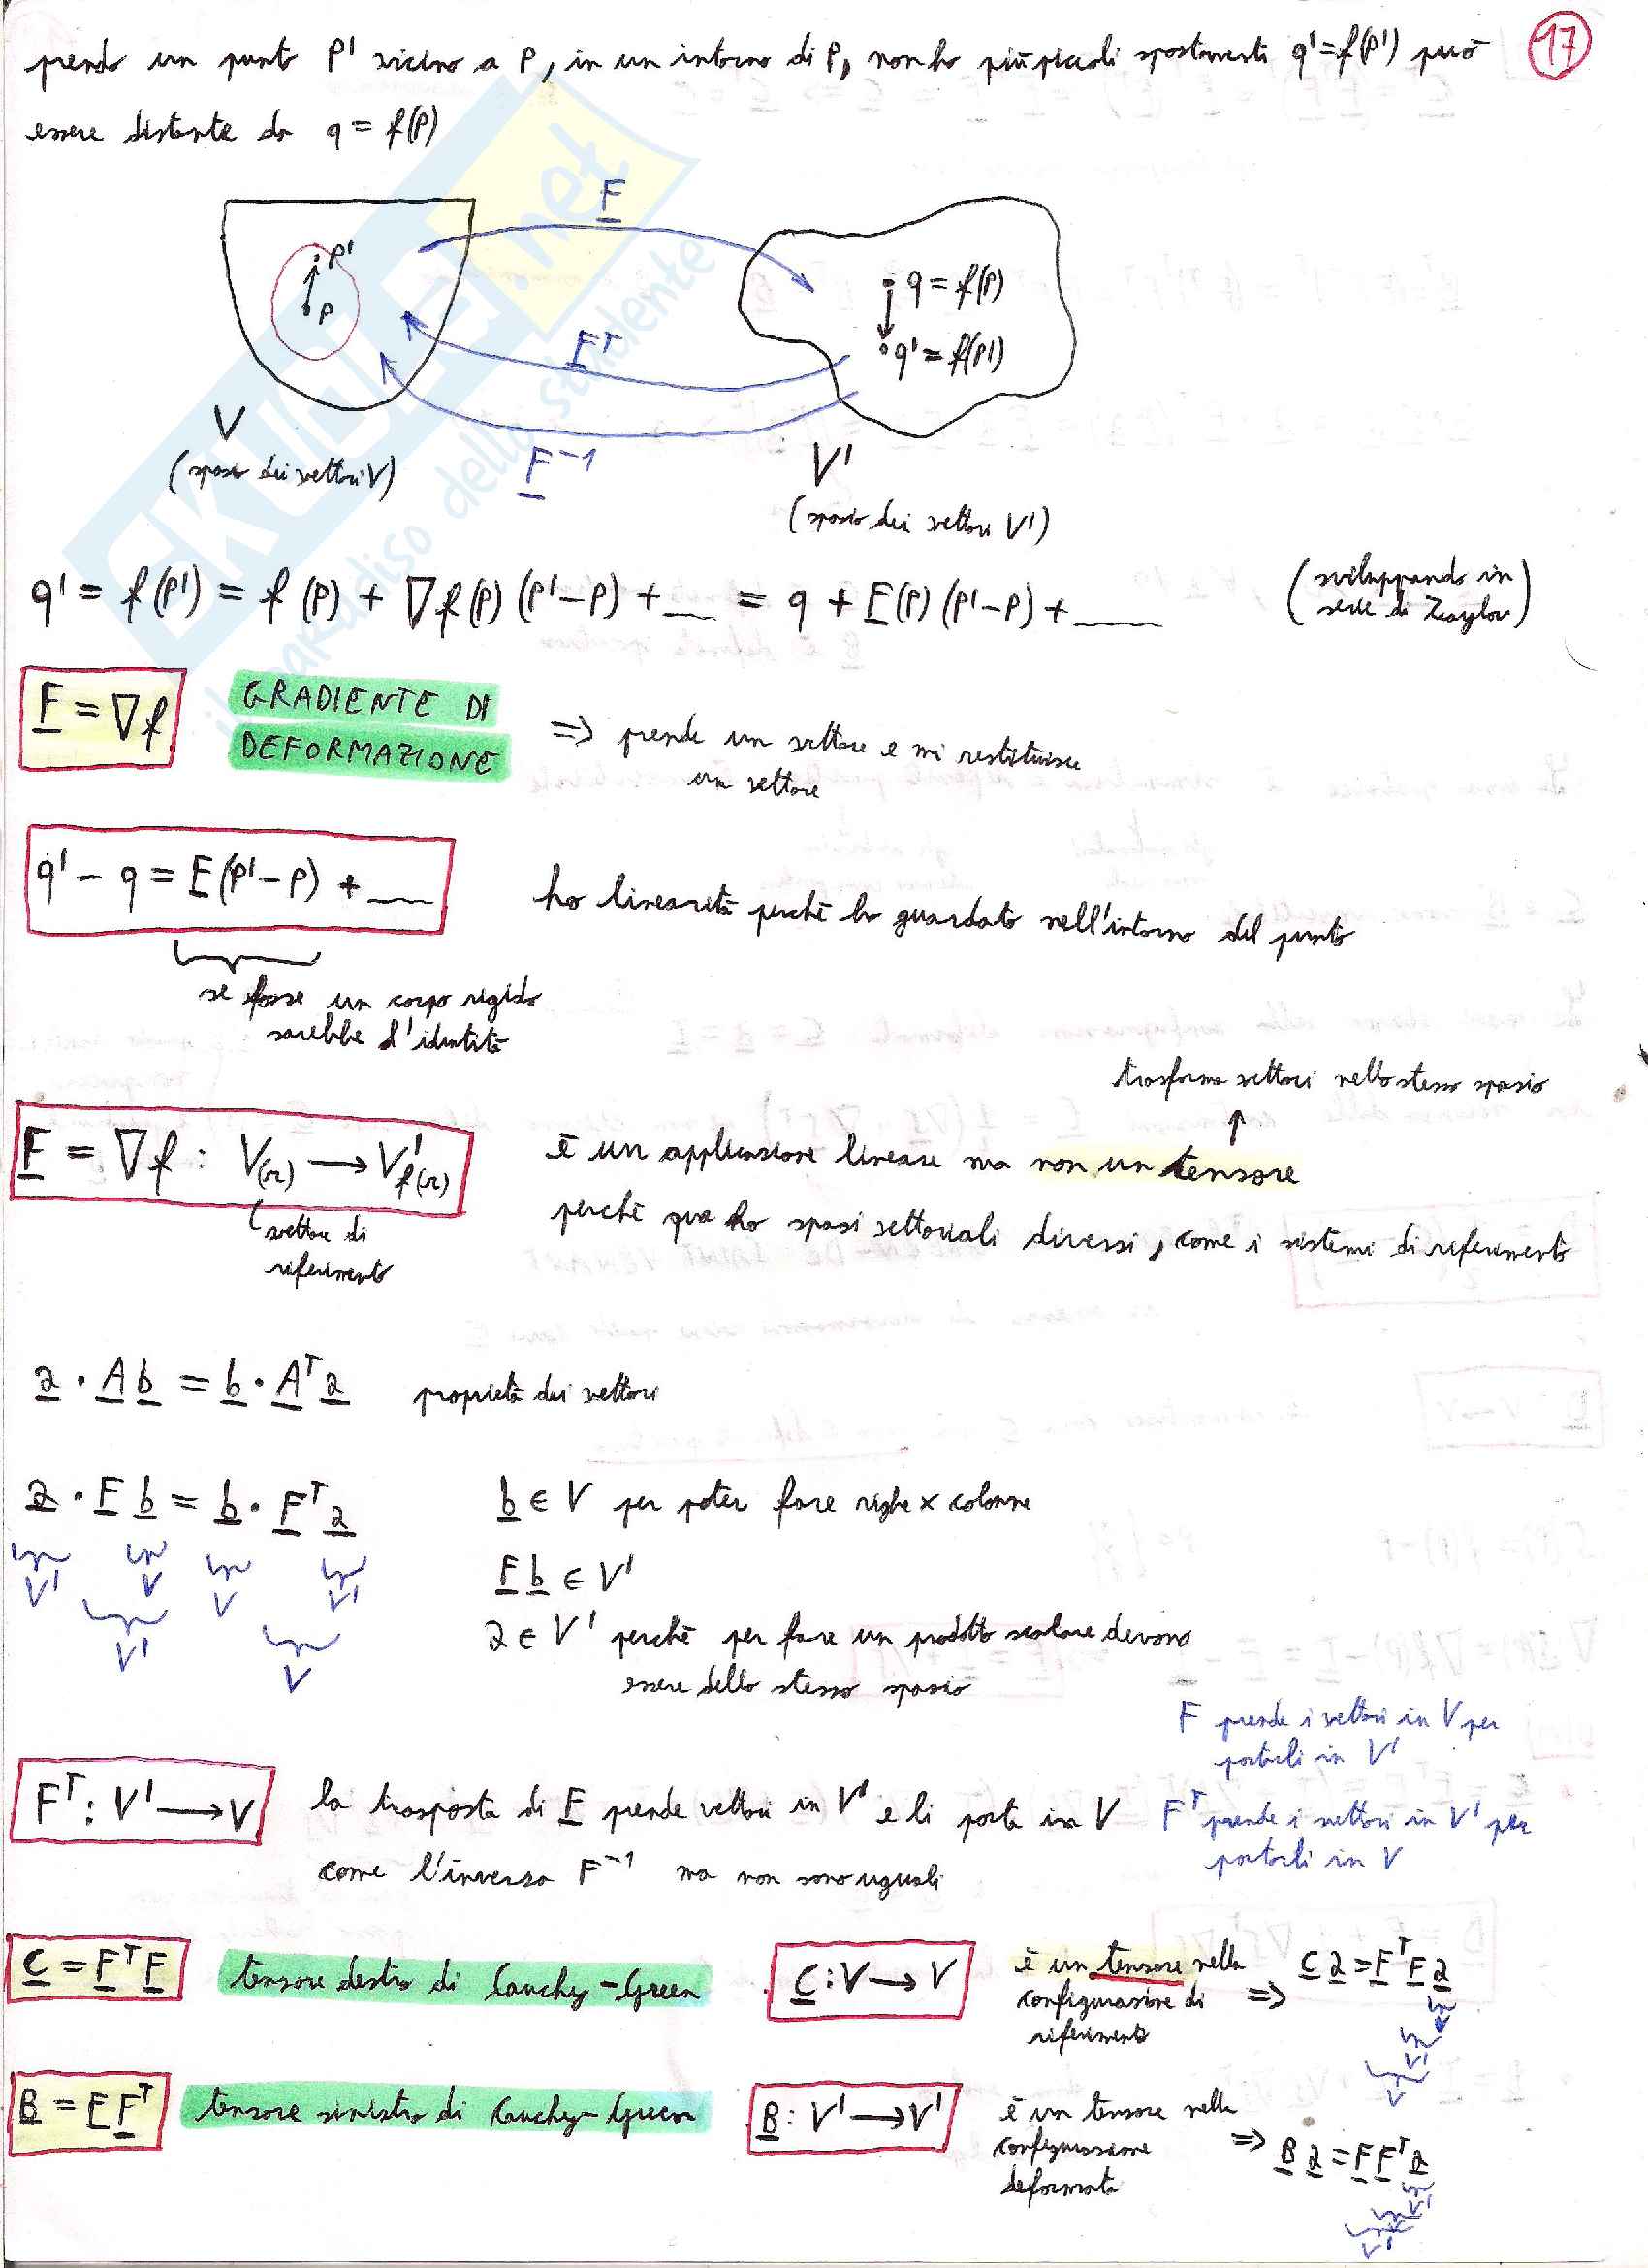 prendo un punto p' vicino a p, in un intorno di p, non ho più piccoli spostamenti q'=f(p') può
17
essere distante da q = f(p)
F
p'
p
q = f(p)
q' = f(p')
Fᵀ
F⁻¹
V
(spazio dei vettori V)
V'
(spazio dei vettori V')
q' = f(p') = f(p) + ∇f(p)(p'-p) + __ = q + F(p)(p'-p) + ___
(sviluppando in
serie di Taylor)
F = ∇f
GRADIENTE DI
DEFORMAZIONE
⇒ prende un vettore e mi restituisce
un vettore
q' - q = F(p'-p) + __
ho linearità perché ho guardato nell'intorno del punto
se fosse un corpo rigido
sarebbe l'identità
trasforma vettori nello stesso spazio
↑
F = ∇f : V(r) → V'f(r)
è un applicazione lineare ma non un tensore
vettore di
riferimento
perché qua ho spazi vettoriali diversi, come i sistemi di riferimento
a · A b = b · Aᵀ a proprietà dei vettori
a · F b = b · Fᵀ a
b ∈ V per poter fare righe x colonne
V' V V V'
V' V
F b ∈ V'
a ∈ V' perché per fare un prodotto scalare devono
essere dello stesso spazio
F prende i vettori in V per
portarli in V'
Fᵀ : V' → V
la trasposta di F prende vettori in V' e li porta in V
come l'inversa F⁻¹ ma non sono uguali
Fᵀ prende i vettori in V' per
portarli in V
C = Fᵀ F
tensore destro di Cauchy-Green
C : V → V
è un tensore nella
configurazione di
riferimento
⇒ C a = Fᵀ F a
V
V'
V
B = F Fᵀ
tensore sinistro di Cauchy-Green
B : V' → V'
è un tensore nella
configurazione
deformata
⇒ B a = F Fᵀ a
V'
V
V'
SKUOLA.net
il paradiso dello studente